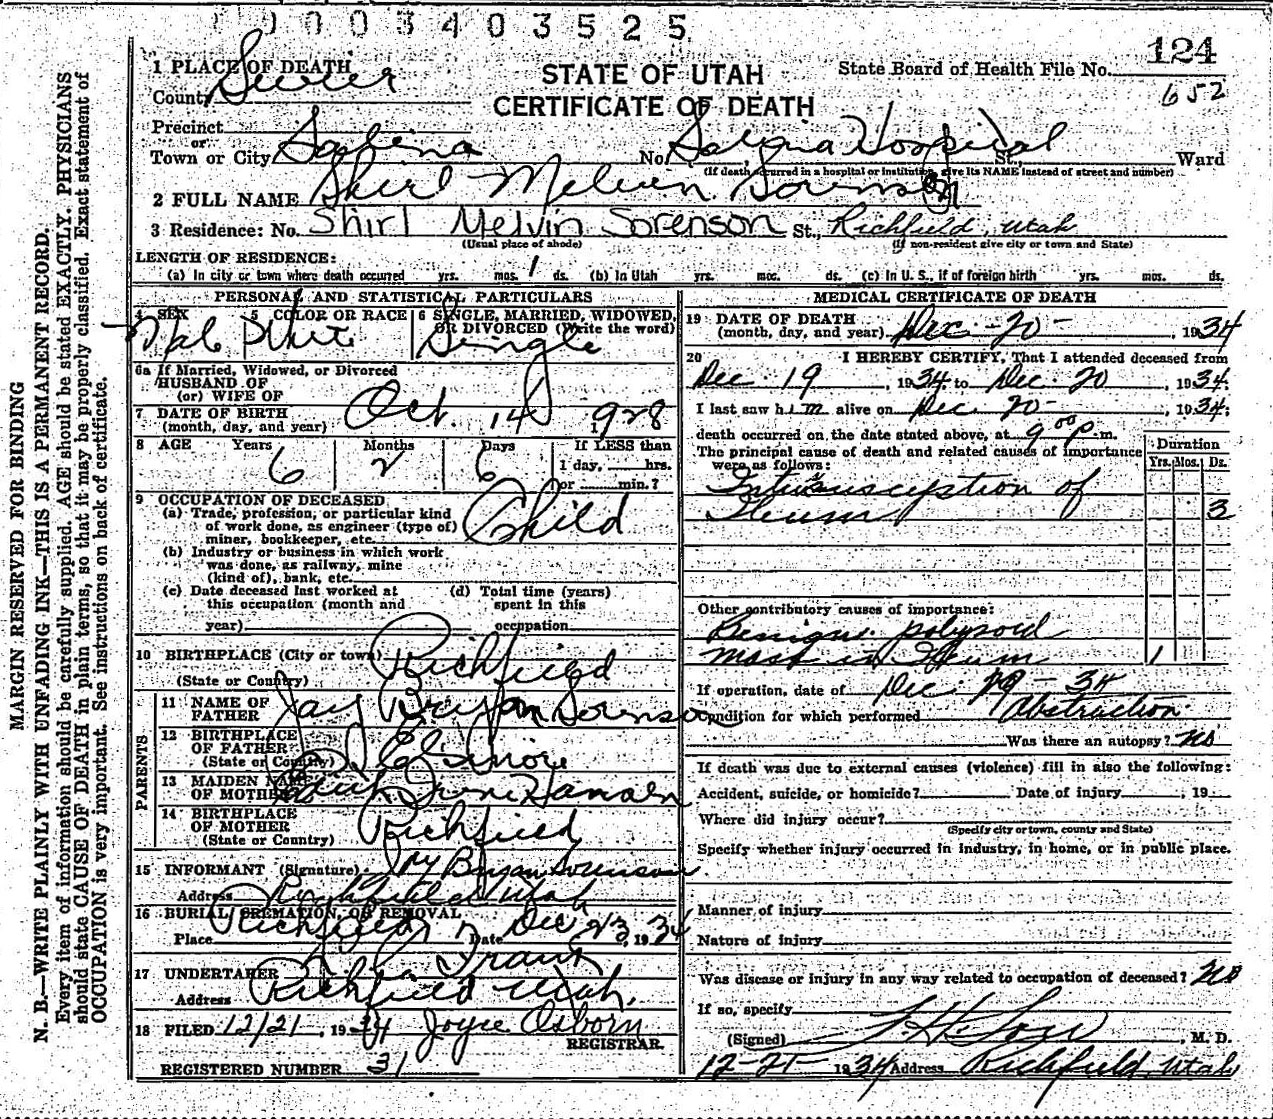 0003403525
124
1 PLACE OF DEATH
STATE OF UTAH
State Board of Health File No.
County Sevier
CERTIFICATE OF DEATH
652
Precinct
or
Town or City Salina No. Salina Hospital St., Ward
(If death occurred in a hospital or institution, give its NAME instead of street and number)
2 FULL NAME Shirl Melvin Sorenson
3 Residence: No. Shirl Melvin Sorenson St., Richfield, Utah
(Usual place of abode) (If non-resident give city or town and State)
LENGTH OF RESIDENCE:
(a) In city or town where death occurred yrs. mos. 1 ds. (b) In Utah yrs. mos. ds. (c) In U. S., if of foreign birth yrs. mos. ds.
PERSONAL AND STATISTICAL PARTICULARS
4 SEX 5 COLOR OR RACE 6 SINGLE, MARRIED, WIDOWED, OR DIVORCED (Write the word)
Male White Single
6a If Married, Widowed, or Divorced
HUSBAND OF
(or) WIFE OF
7 DATE OF BIRTH
(month, day, and year) Oct. 14 1928
8 AGE Years Months Days If LESS than
6 2 6 1 day, hrs.
or min.?
9 OCCUPATION OF DECEASED
(a) Trade, profession, or particular kind
of work done, as engineer (type of)
miner, bookkeeper, etc. Child
(b) Industry or business in which work
was done, as railway, mine
(kind of), bank, etc.
(c) Date deceased last worked at (d) Total time (years)
this occupation (month and spent in this
year) occupation
10 BIRTHPLACE (City or town) Richfield
(State or Country)
PARENTS
11 NAME OF
FATHER Jay Bryan Sorenson
12 BIRTHPLACE
OF FATHER Elsinore
(State or Country)
13 MAIDEN NAME
OF MOTHER Irine Hansen
14 BIRTHPLACE
OF MOTHER Richfield
(State or Country)
15 INFORMANT (Signature) Jay Bryan Sorenson
Address Richfield Utah
16 BURIAL, CREMATION, OR REMOVAL
Place Richfield Date Dec 23, 1934
17 UNDERTAKER
Address Richfield Utah.
18 FILED 12/21, 1934 Joyce Osborn
REGISTRAR.
REGISTERED NUMBER 31
MEDICAL CERTIFICATE OF DEATH
19 DATE OF DEATH
(month, day, and year) Dec - 20 - , 1934
20 I HEREBY CERTIFY, That I attended deceased from
Dec. 19, 1934 to Dec. 20, 1934.
I last saw him alive on Dec. 20 - , 1934;
death occurred on the date stated above, at 9 00 p. m.
The principal cause of death and related causes of importance
were as follows:
Duration
Yrs. Mos. Ds.
Intussusception of
Ileum 3
Other contributory causes of importance:
Benign polypoid
mass in Ileum 1
If operation, date of Dec. 19 - 34
Condition for which performed Obstruction
Was there an autopsy? No
If death was due to external causes (violence) fill in also the following:
Accident, suicide, or homicide? Date of injury , 19
Where did injury occur?
(Specify city or town, county and State)
Specify whether injury occurred in industry, in home, or in public place.
Manner of injury
Nature of injury
Was disease or injury in any way related to occupation of deceased? No
If so, specify
(Signed) , M. D.
12-21 1934 Address Richfield, Utah
MARGIN RESERVED FOR BINDING
N. B.—WRITE PLAINLY WITH UNFADING INK—THIS IS A PERMANENT RECORD.
Every item of information should be carefully supplied. AGE should be stated EXACTLY. PHYSICIANS
should state CAUSE OF DEATH in plain terms, so that it may be properly classified. Exact statement of
OCCUPATION is very important. See instructions on back of certificate.